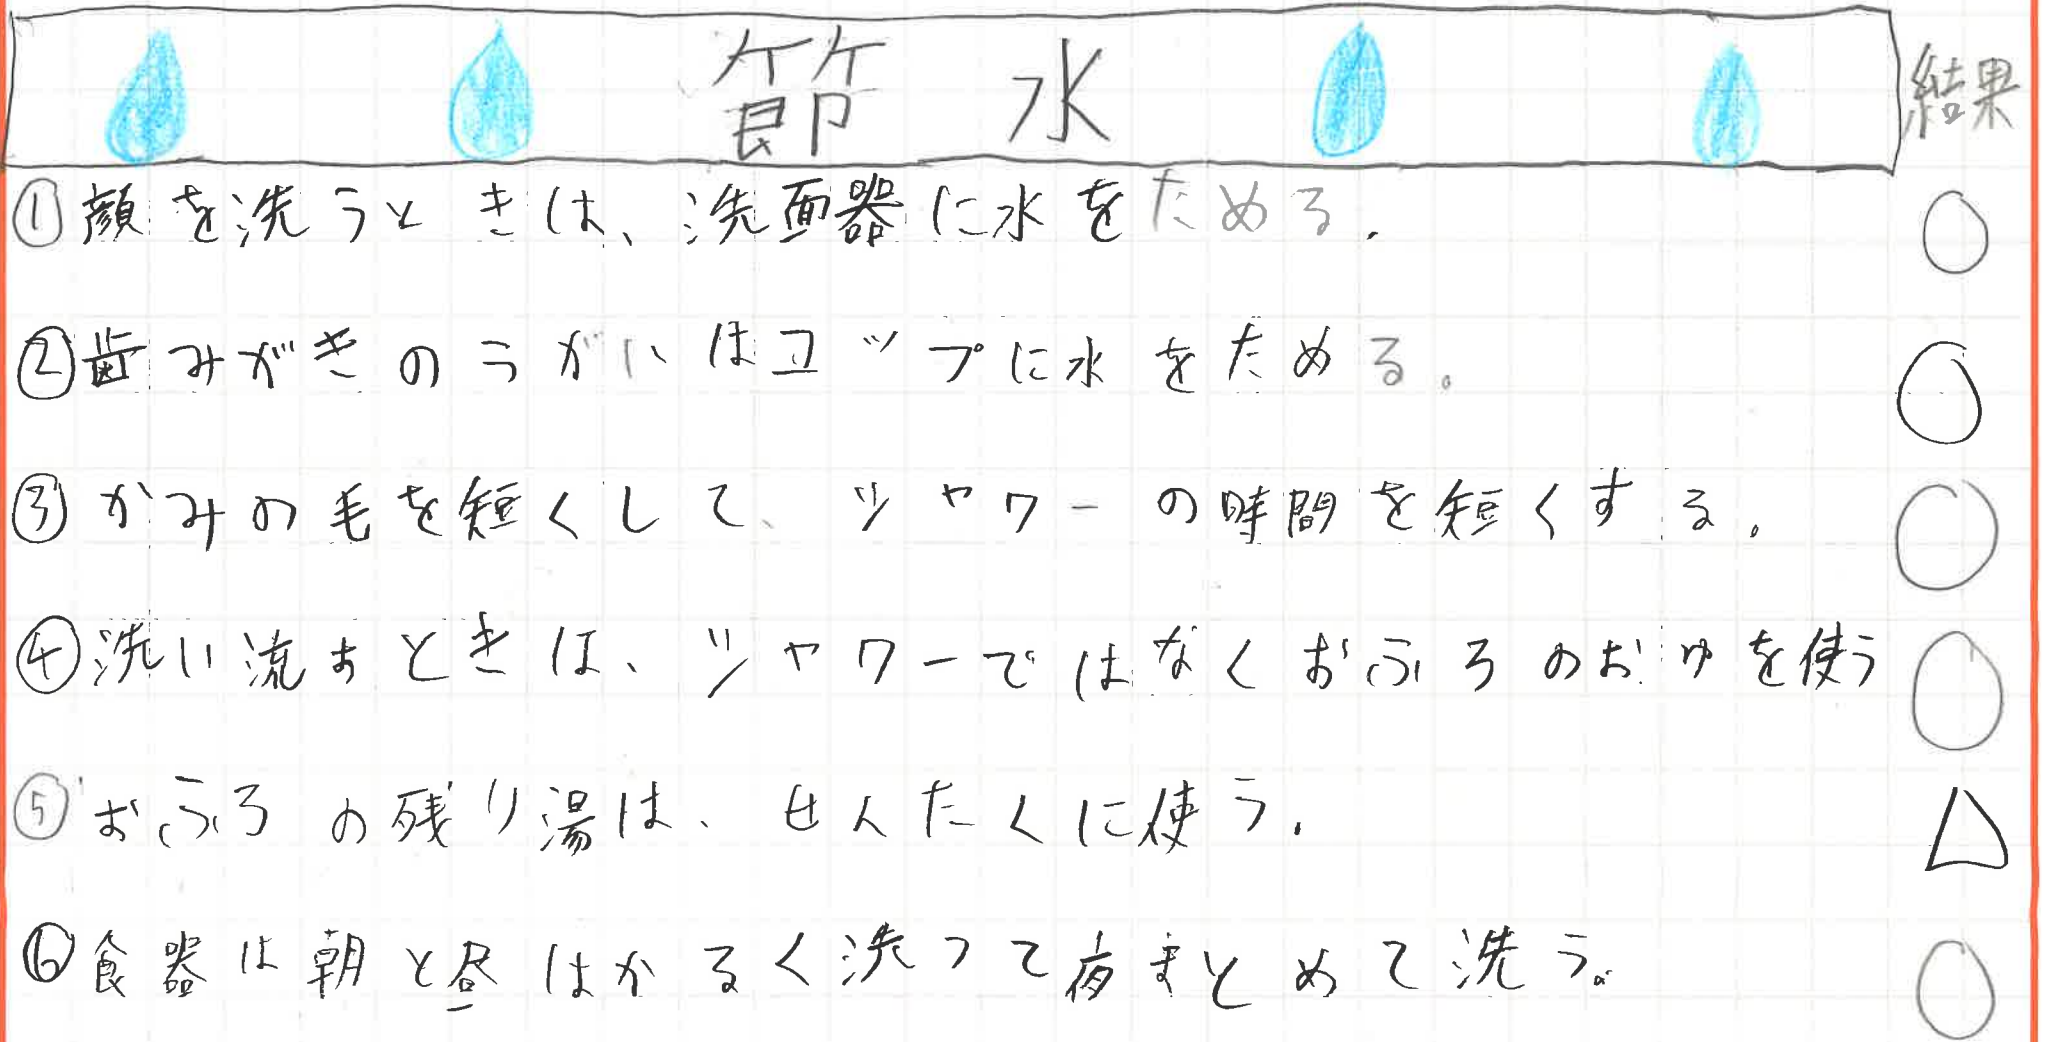 節水 結果
①顔を洗うときは、洗面器に水をためる. ○
②歯みがきのうがいはコップに水をためる。 ○
③かみの毛を短くして、シャワーの時間を短くする。 ○
④洗い流すときは、シャワーではなくおふろのおゆを使う ○
⑤おふろの残り湯は、せんたくに使う. △
⑥食器は朝と昼はかるく洗って夜まとめて洗う。 ○